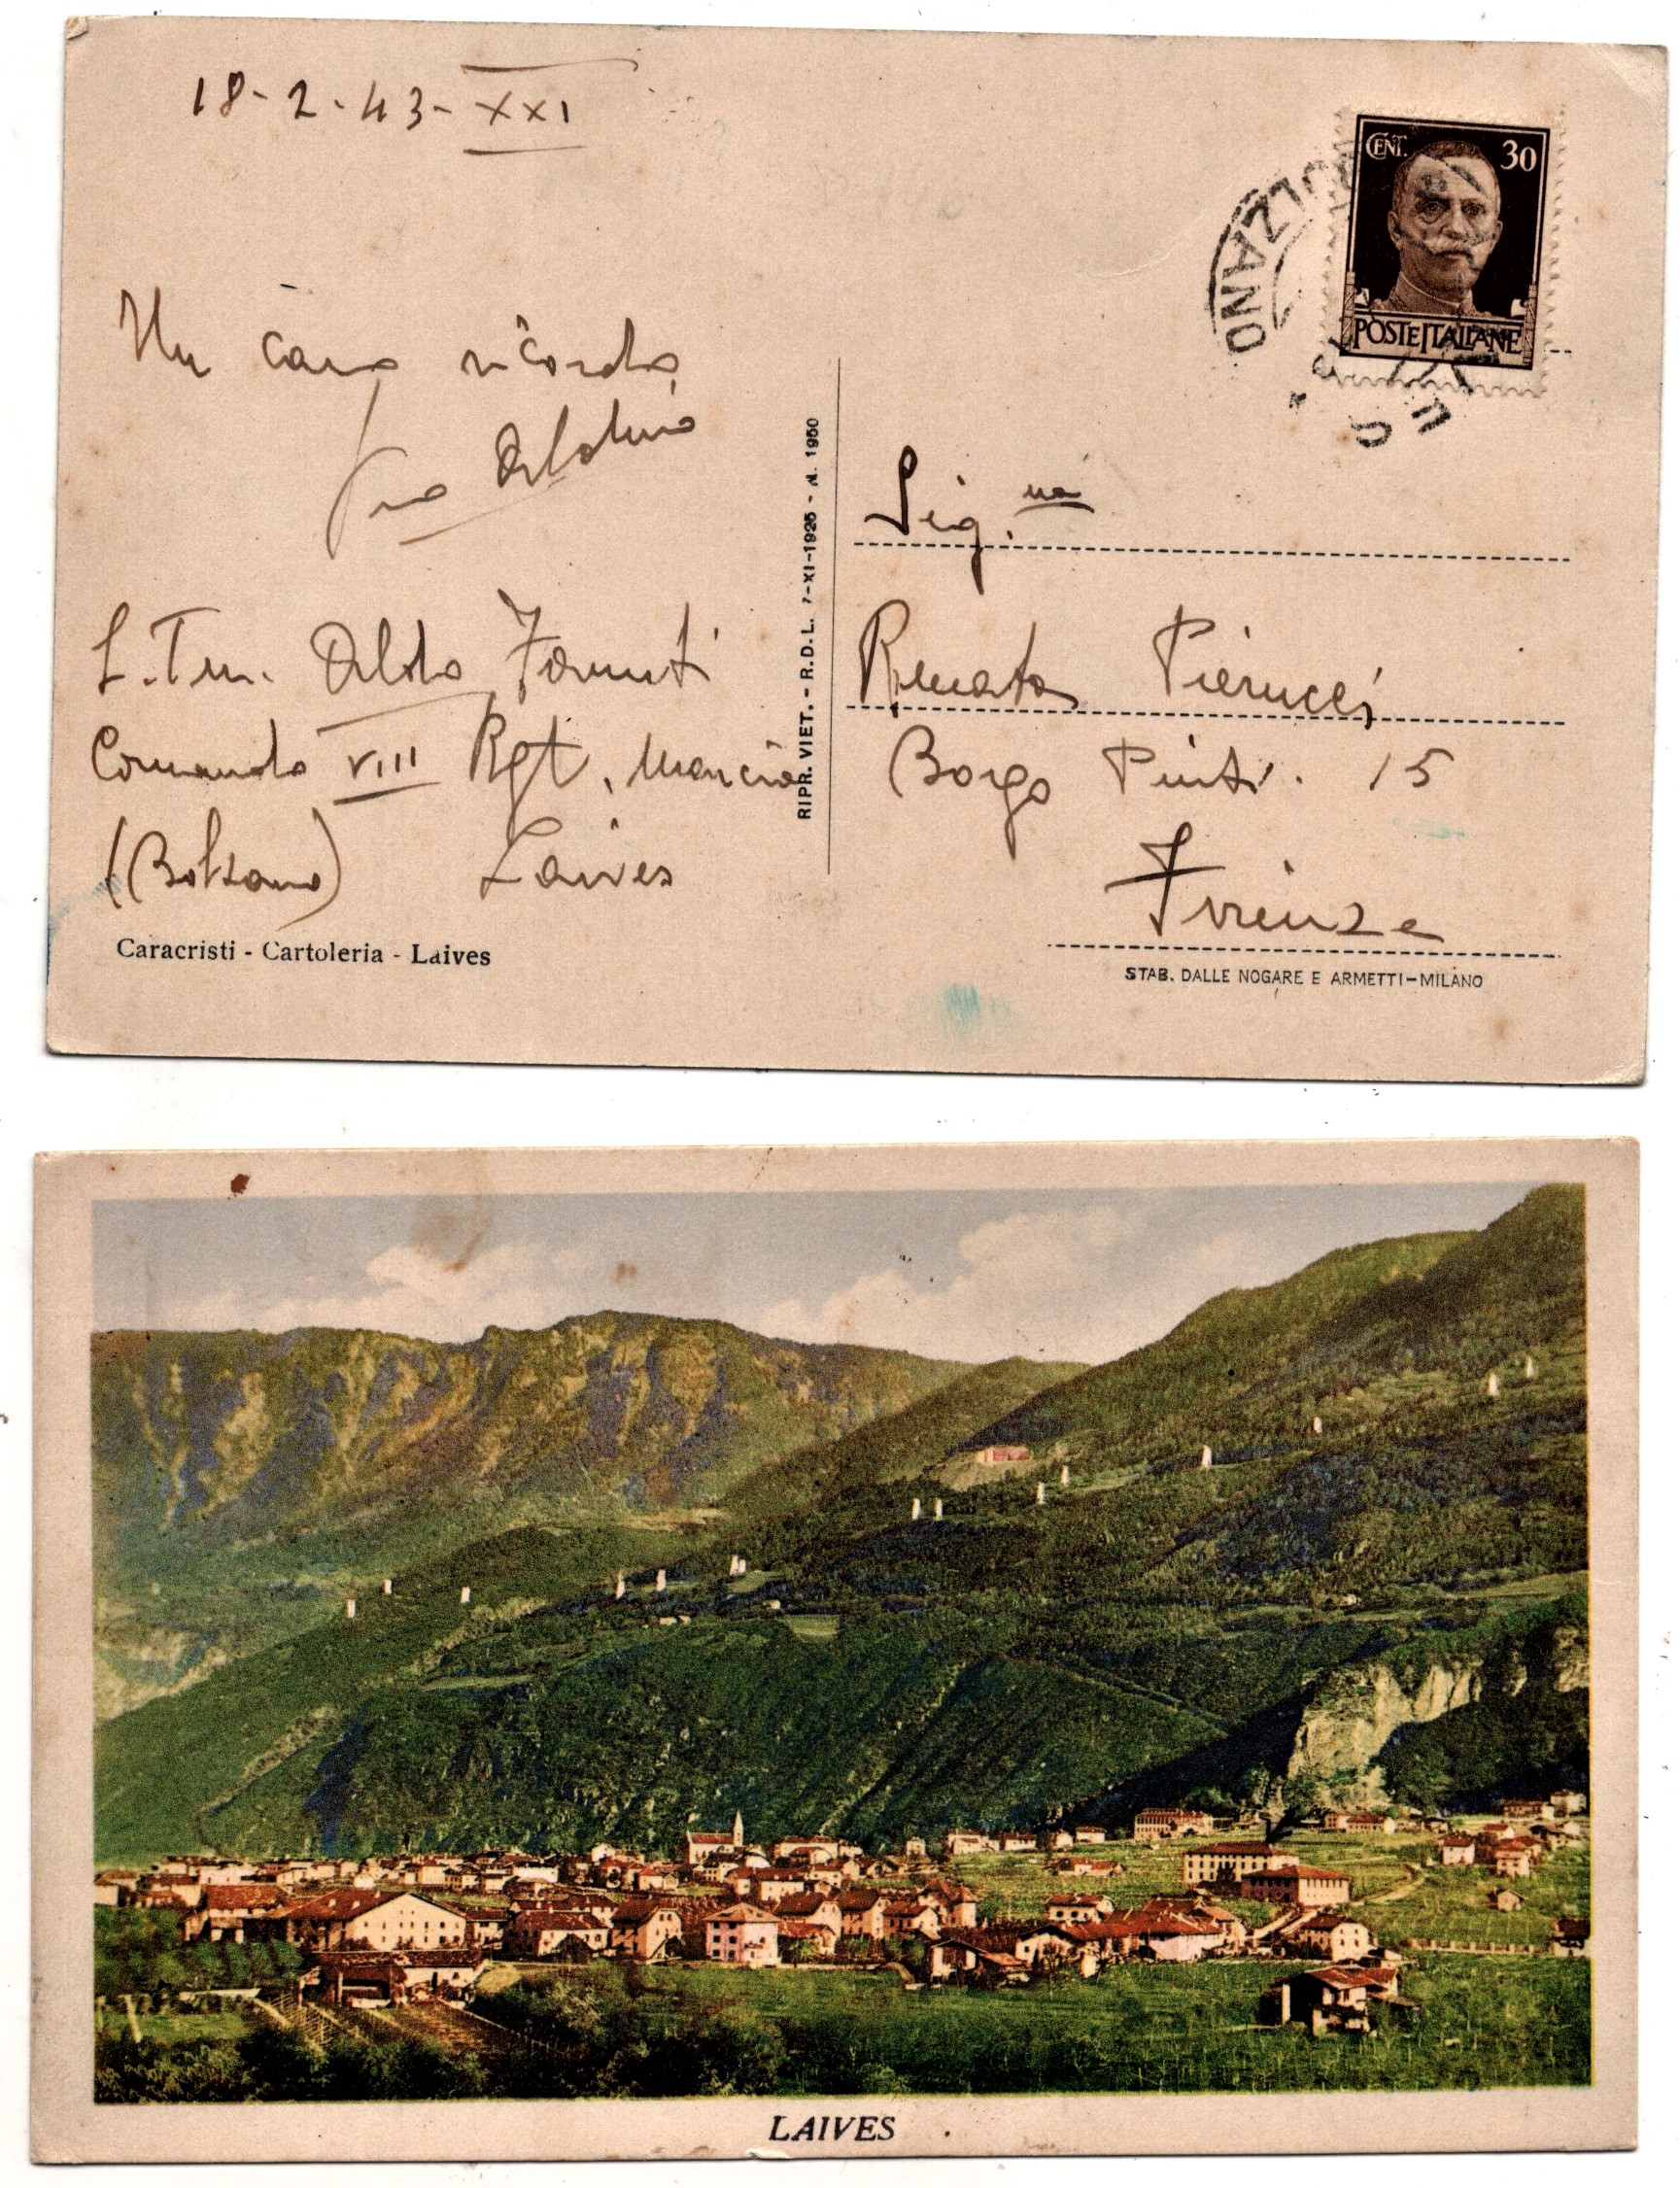 18-2-43-XXI
Un caro ricordo,
Aldino
S.Ten. Aldo
Comando VIII Rgt. Marcia
(Bolzano) Laives
Caracristi - Cartoleria - Laives
RIPR. VIET. - R.D.L. 7-XI-1925 - N. 1950
BOLZANO
CENT. 30
POSTE ITALIANE
Sig.na
Renata Pierucci
Borgo Pinti. 15
Firenze
STAB. DALLE NOGARE E ARMETTI-MILANO
LAIVES